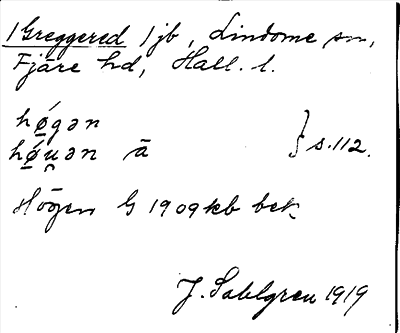 1 Greggered 1 jb, Lindome sn,
Fjäre hd, Hall. l.
hǿ̱gən
hǿ̱u̯ən ā } s. 112.
Högen G 1909kb bek
J. Sahlgren 1919